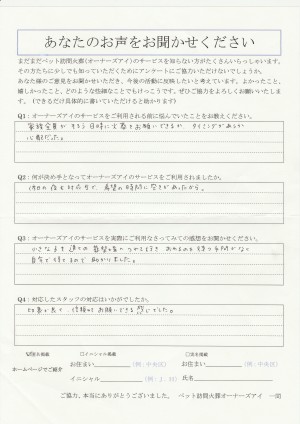 あなたのお声をお聞かせください
まだまだペット訪問火葬(オーナーズアイ)のサービスを知らない方がたくさんいらっしゃいます。
その方たちに少しでも知っていただくためにアンケートにご協力いただけないでしょうか。
あなた様のご意見をお聞かせいただき、今後の活動に反映したいと考えています。よかったこと、
嬉しかったこと、どのような些細なことでもけっこうです。ぜひ協力をよろしくお願いいたしま
す。(できるだけ具体的に書いていただけると助かります)
Q1:オーナーズアイのサービスをご利用される前に悩んでいたことをお教えください。
家族全員がそろう日時に火葬をお願いできるか、タイミングがあるか
心配だった。
Q2:何が決め手となってオーナーズアイをご利用されましたか。
の対応が、希望の時間に空きがあったから。
Q3:オーナーズアイのサービスを実際にご利用なさってみての感想をお聞かせください。
小さな子を連れての
自宅で待てるので助かりました。
Q4:対応したスタッフの対応はいかがでしたか。
お願いできる感じでした。
☑匿名掲載 □イニシャル掲載 □実名掲載
ホームページでご紹介
お住まい (例:中央区) お住まい (例:中央区)
イニシャル (例:J.H) 氏名
ご協力、本当にありがとうございました。 ペット訪問火葬オーナーズアイ 一同